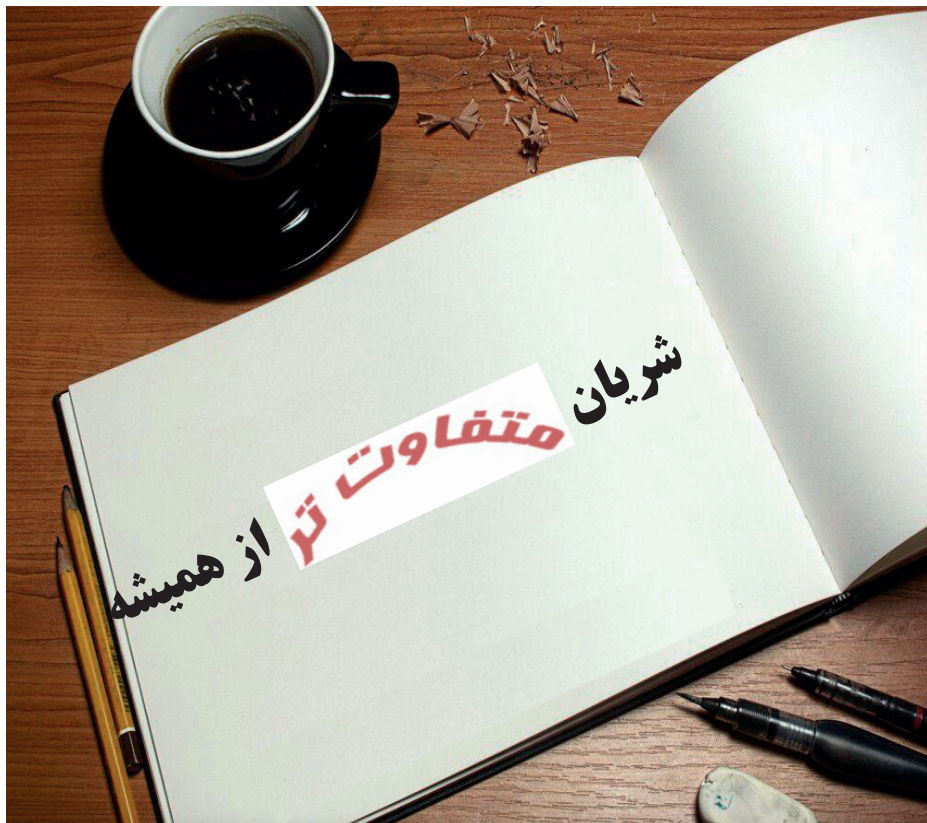 شریان متفاوت تر از همیشه